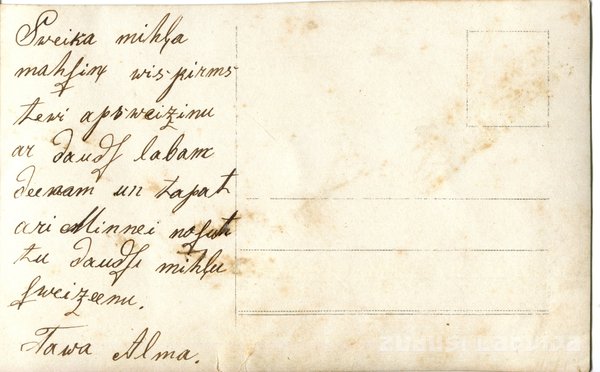 Sweika mihļa
mahsiņ wispirms
tevi apsweizinu
ar daudſ labam
deenam un tapat
ari Minnei noſuh
tu daudſ mihļu
ſweizeenu.
Tawa Alma.